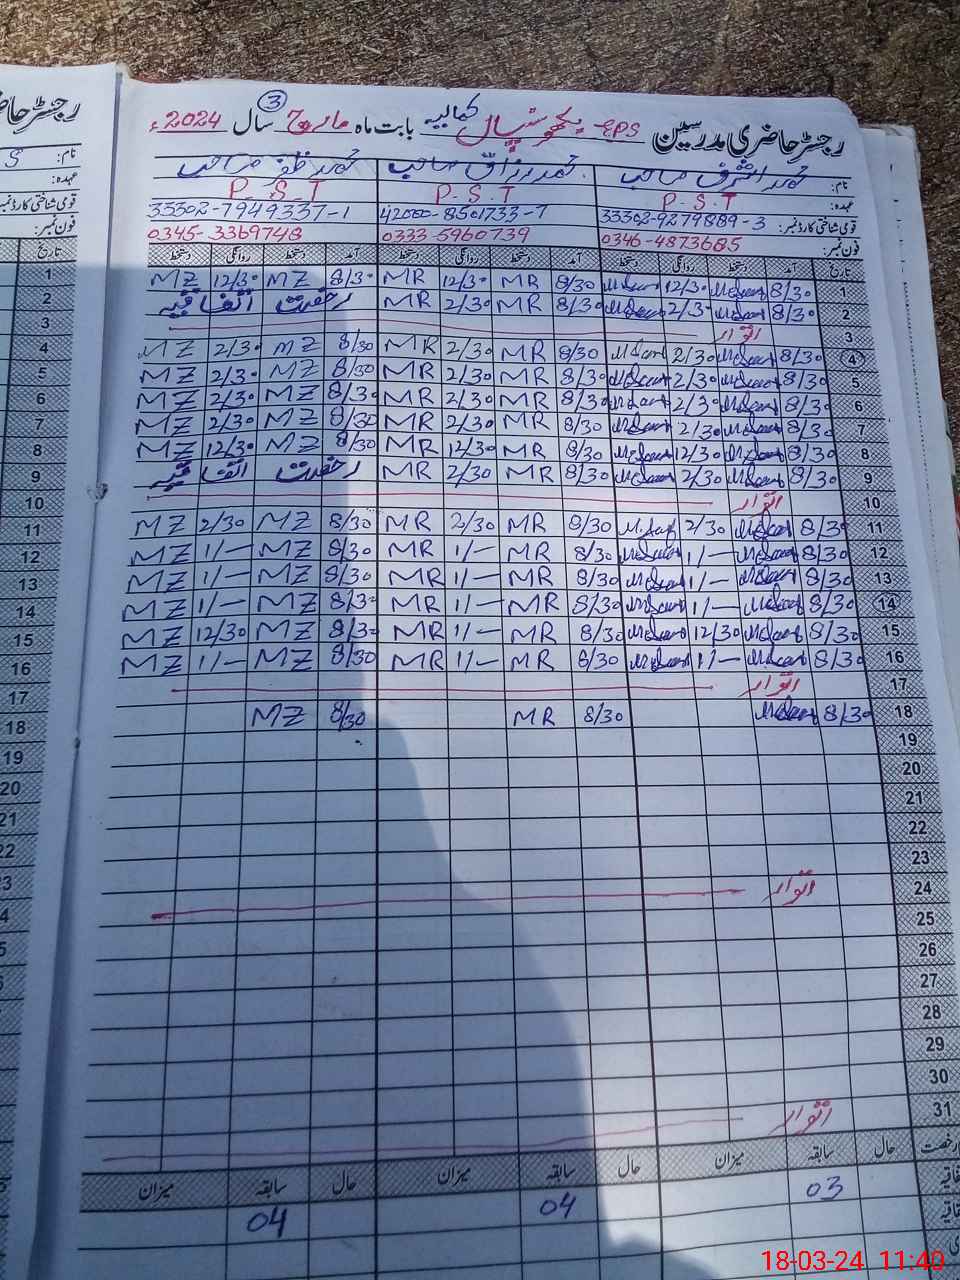 رجسٹر حاضری مدرسین GPS بھوسی پال کمالیہ بابت ماہ مارچ 3 سال 2024ء
نام: محمد اشرف صاحب محمد رزاق صاحب محمد ظفر صاحب
عہدہ: P.S.T P.S.T P.S.T
قومی شناختی کارڈ نمبر: 33302-9279889-3 42000-8501733-7 33302-7949337-1
فون نمبر: 0346-4873685 0333-5960739 0345-3369748
تاریخ آمد دستخط روانگی دستخط آمد دستخط روانگی دستخط آمد دستخط روانگی دستخط
1 8/30 12/30 8/30 MR 12/30 MR 8/30 MZ 12/30 MZ
2 8/30 2/30 8/30 MR 2/30 MR رخصت اتفاقیہ
3 اتوار
4 8/30 2/30 8/30 MR 2/30 MR 8/30 MZ 2/30 MZ
5 8/30 2/30 8/30 MR 2/30 MR 8/30 MZ 2/30 MZ
6 8/30 2/30 8/30 MR 2/30 MR 8/30 MZ 2/30 MZ
7 8/30 2/30 8/30 MR 2/30 MR 8/30 MZ 2/30 MZ
8 8/30 12/30 8/30 MR 12/30 MR 8/30 MZ 12/30 MZ
9 8/30 2/30 8/30 MR 2/30 MR رخصت اتفاقیہ
10 اتوار
11 8/30 2/30 8/30 MR 2/30 MR 8/30 MZ 2/30 MZ
12 8/30 1/— 8/30 MR 1/— MR 8/30 MZ 1/— MZ
13 8/30 1/— 8/30 MR 1/— MR 8/30 MZ 1/— MZ
14 8/30 1/— 8/30 MR 1/— MR 8/30 MZ 1/— MZ
15 8/30 12/30 8/30 MR 1/— MR 8/30 MZ 12/30 MZ
16 8/30 1/— 8/30 MR 1/— MR 8/30 MZ 1/— MZ
17 اتوار
18 8/30 8/30 MR 8/30 MZ
19
20
21
22
23
24 اتوار
25
26
27
28
29
30
31 اتوار
رخصت حال سابقہ میزان حال سابقہ میزان حال سابقہ میزان
03 04 04
18-03-24 11:40